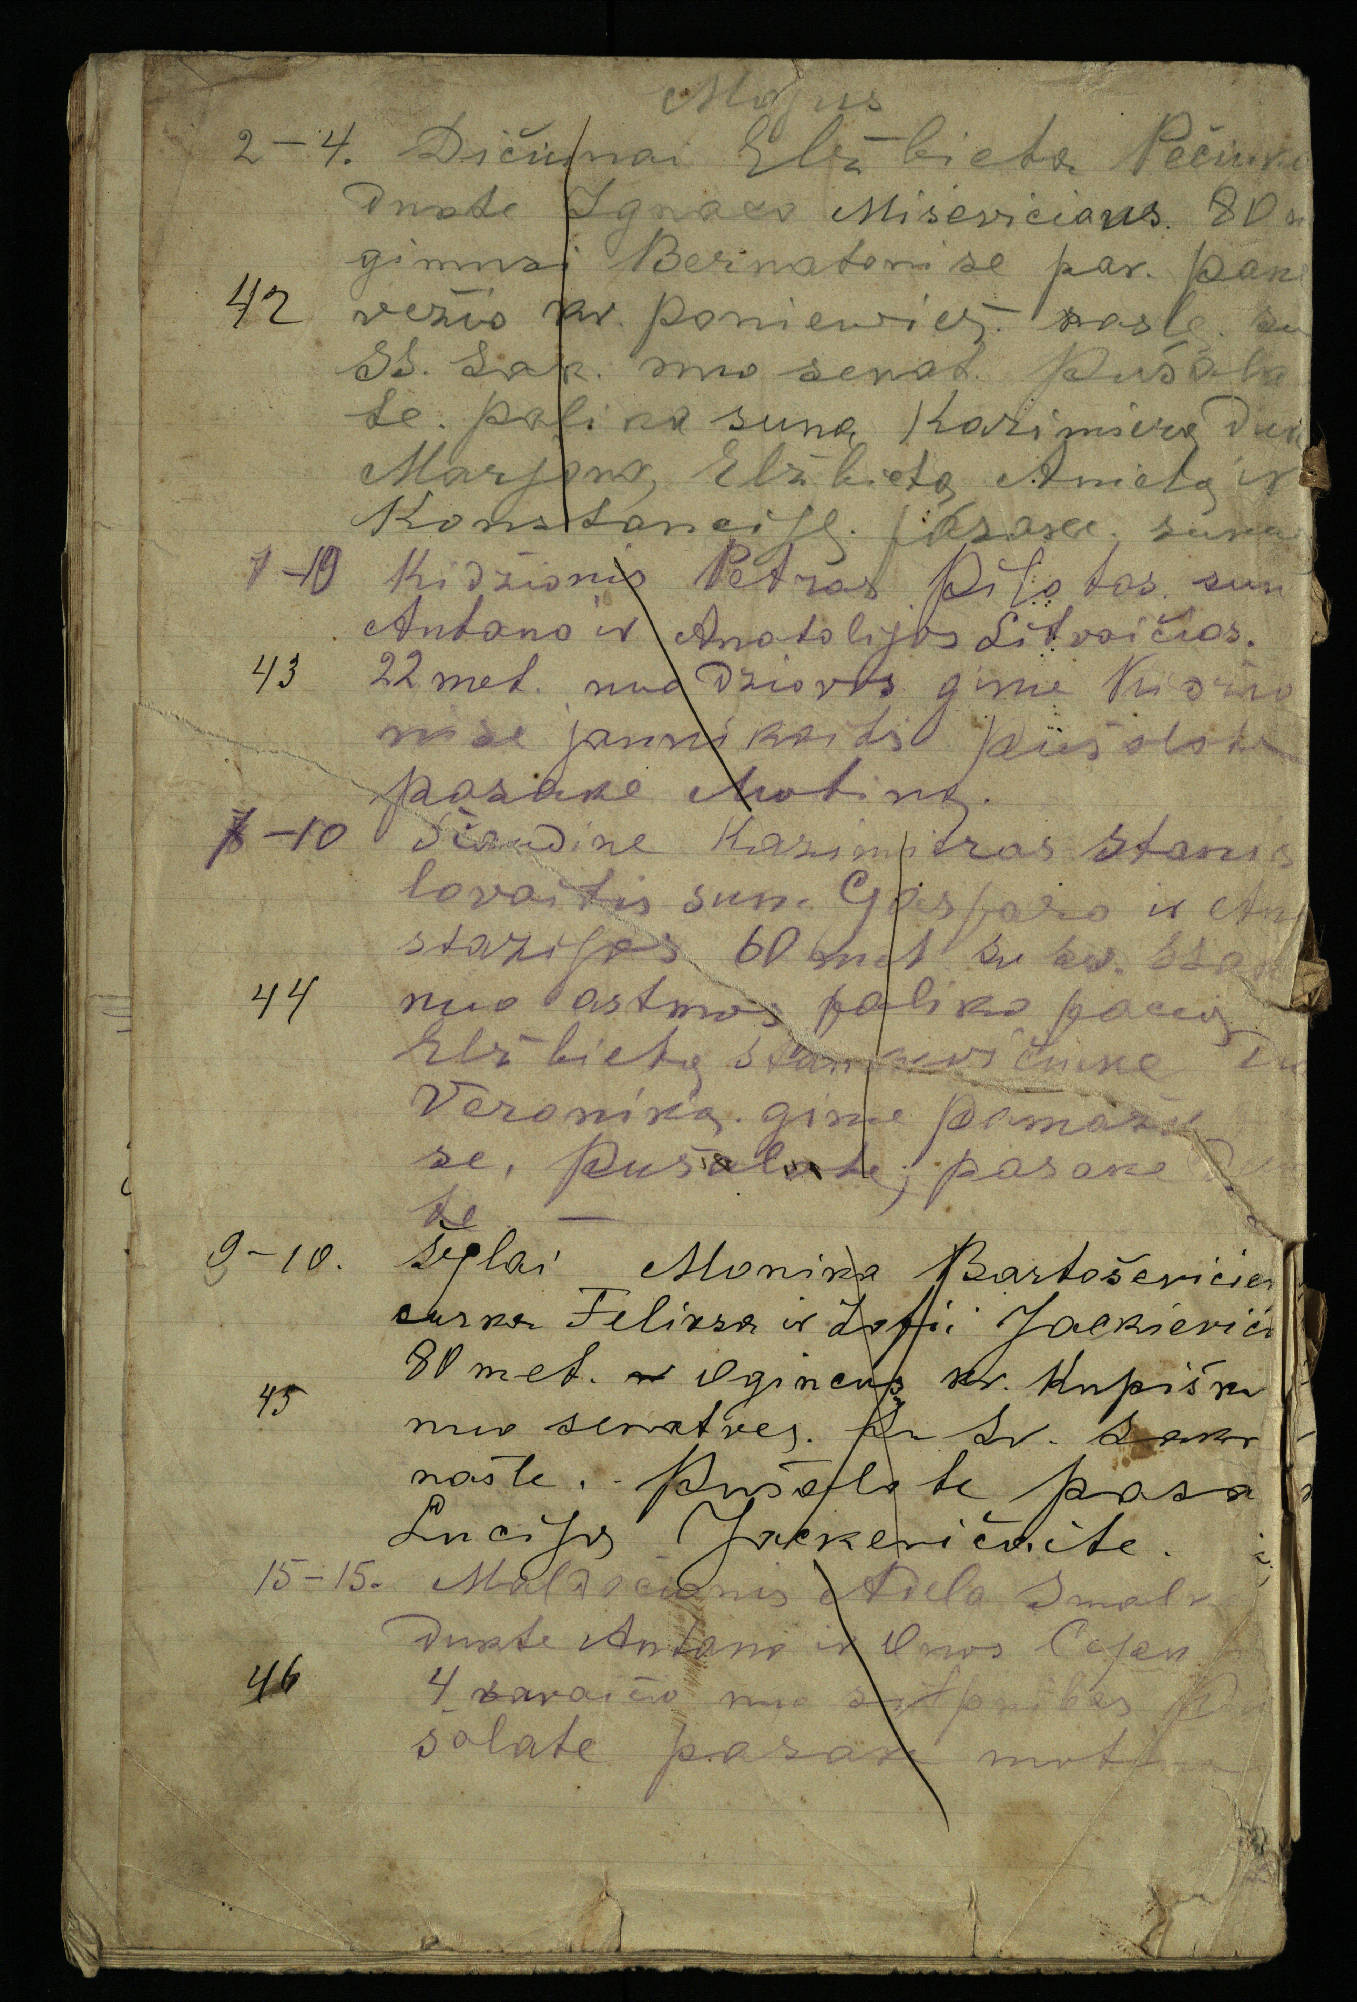 Mojus
2-4. Dičiunai Elžbieta Pečiuk
Dukte Ignaco Miseviciaus. 80 m
gimusi Bernatonise par. pane
42 vežio kv. Poniewiež. nasle. su
SS. Sak. nuo senat. Pušala
te. paliko suna Kazimiera Duk
Marjona, Elžbieta Anieta ir
Konstancija. pasake. suna
7-10 Kidžionis Petras Pilotas. sun
Antano ir Anatolijos Litvaičios.
43 22 met. nuo Džiovos gime Kidžio
nise jaunikaitis Pušolote
pasake Motina.
7-10 Šiaudine Kazimieras Stanis
lovaitis sun. Gasparo ir An
stazijos 60 met su sv. Ssak
44 nuo astmos paliko pacią
Elžbieta Stankevičiuke Du
Veronika. gime Pamaž
se, Pušalote, pasake Duk
te —
9-10. Šeplai Monika Bartoševicien
curka Feliksa ir Zofii Jackievič
80 met. Ogincup kv. Kupišk
45 nuo senatves. Su Sv. Sakr
našle. Pušolote pasa
Lucija Jackevičaite.
15-15. Maldočionis Adela Smalk
Dukte Antano ir Onos Čejek
46 4 savaičio nuo silpnibes Pu
šolate pasake motina